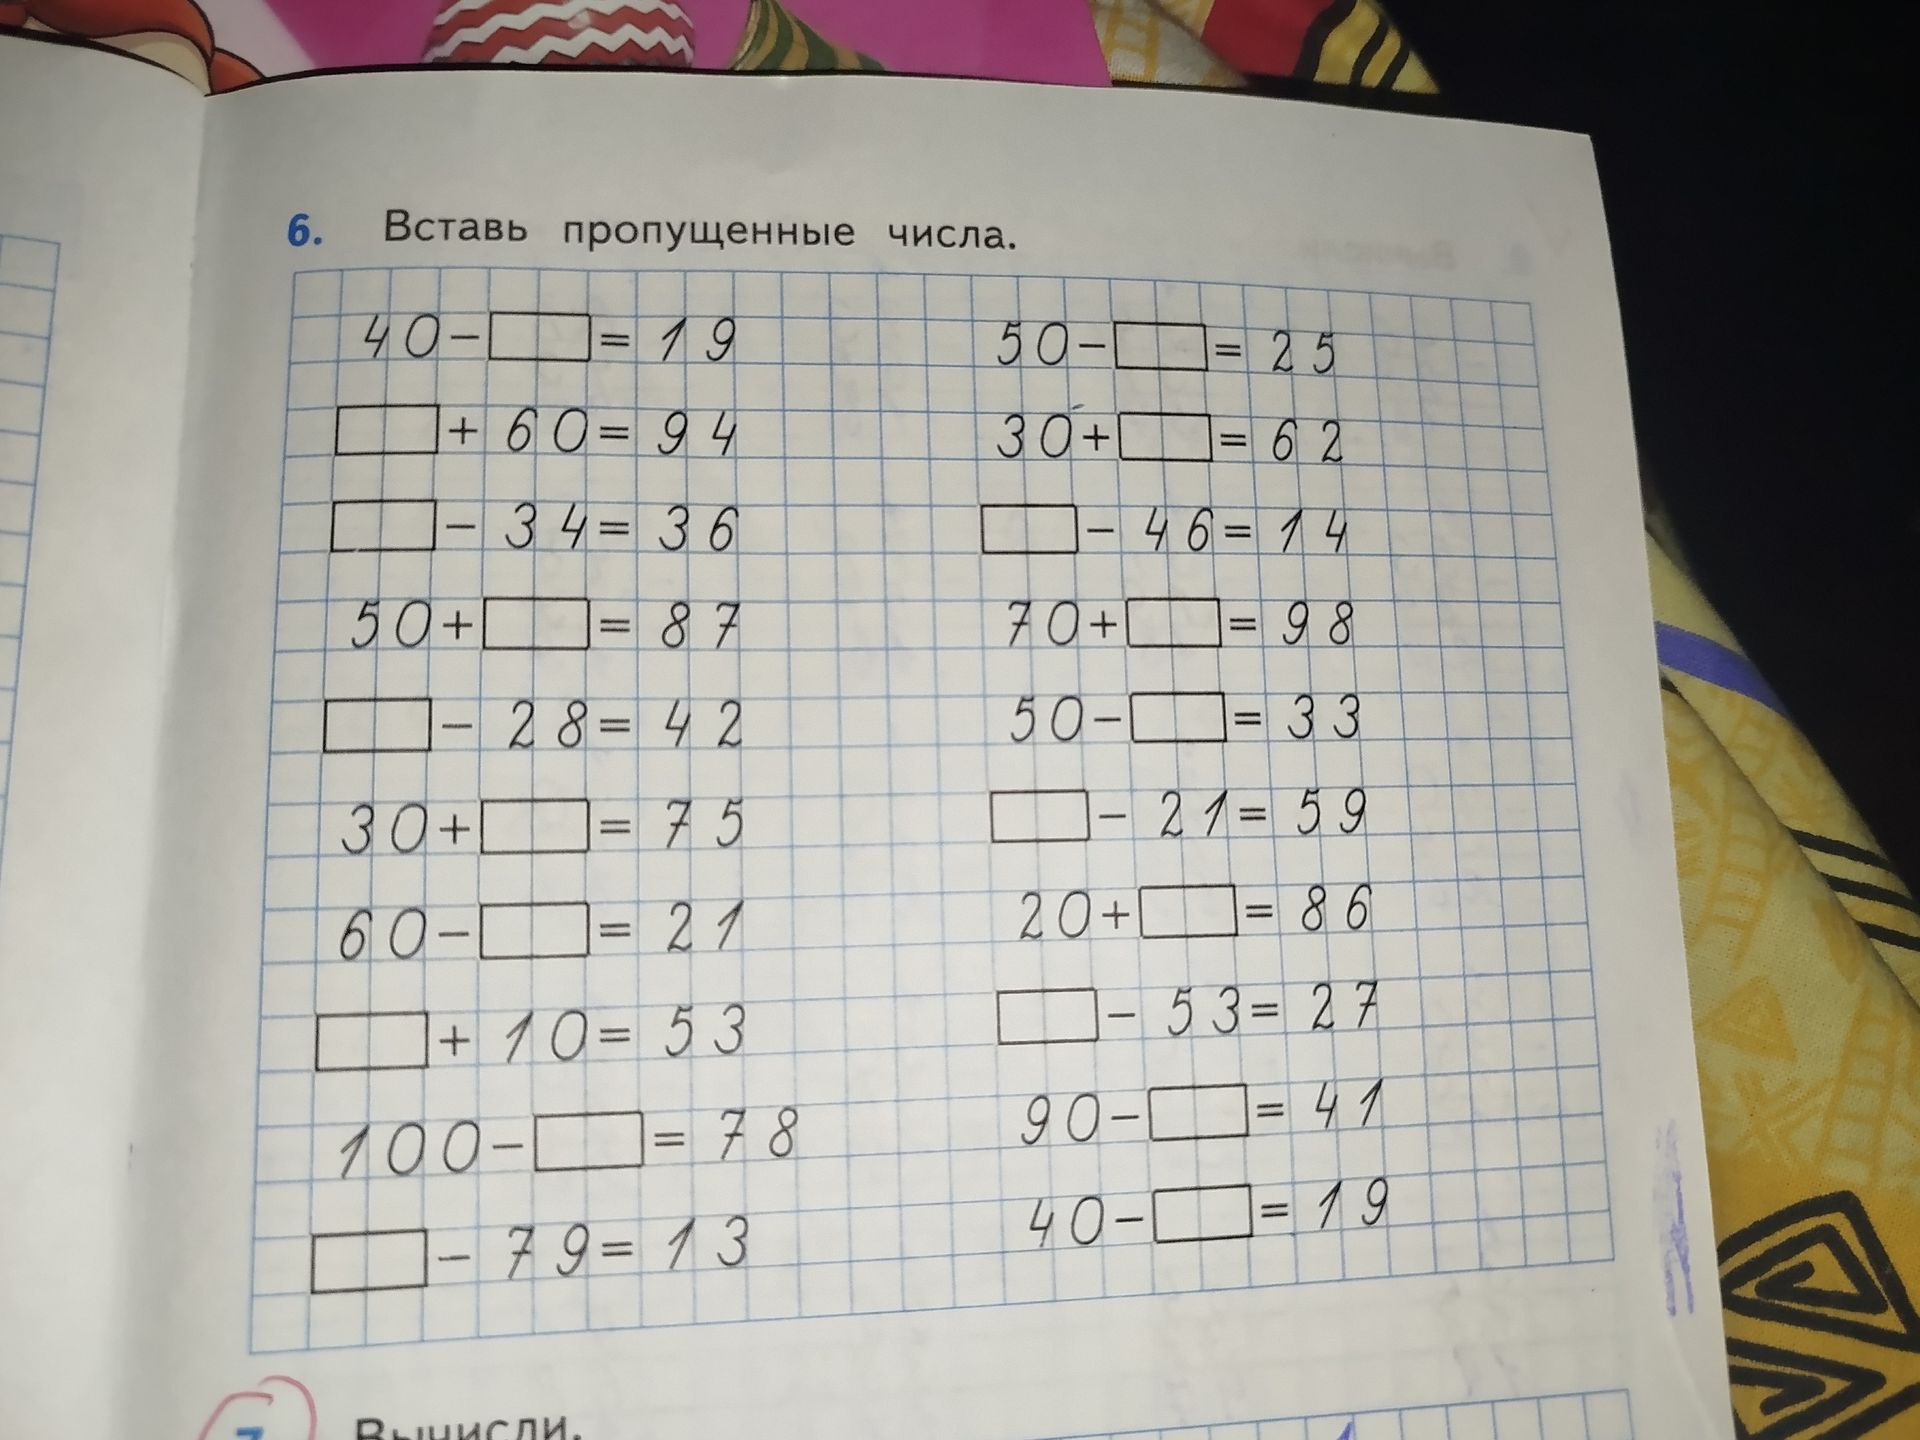 6. Вставь пропущенные числа.
40 − = 19
+ 60 = 94
− 34 = 36
50 + = 87
− 28 = 42
30 + = 75
60 − = 21
+ 10 = 53
100 − = 78
− 79 = 13
50 − = 25
30 + = 62
− 46 = 14
70 + = 98
50 − = 33
− 21 = 59
20 + = 86
− 53 = 27
90 − = 41
40 − = 19
7. Вычисли.